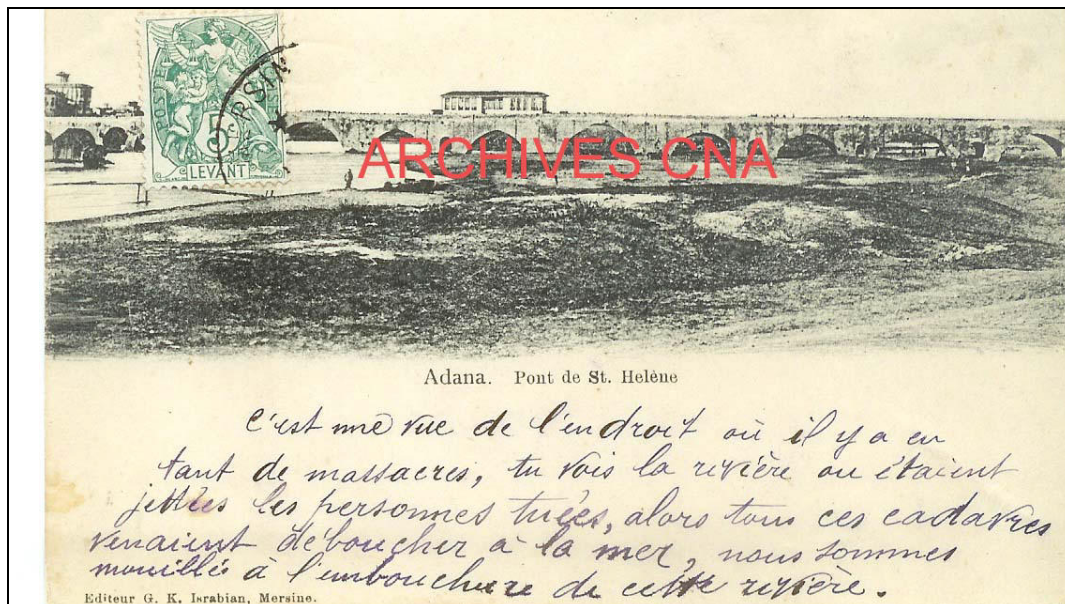 POSTES
5 c
LEVANT
MERSIN
ARCHIVES CNA
Adana. Pont de St. Helène
C'est une vue de l'endroit où il y a eu
tant de massacres, tu vois la rivière ou étaient
jettées les personnes tuées, alors tous ces cadavres
venaient déboucher à la mer, nous sommes
mouillé à l'embouchure de cette rivière.
Editeur G. K. Israbian, Mersine.